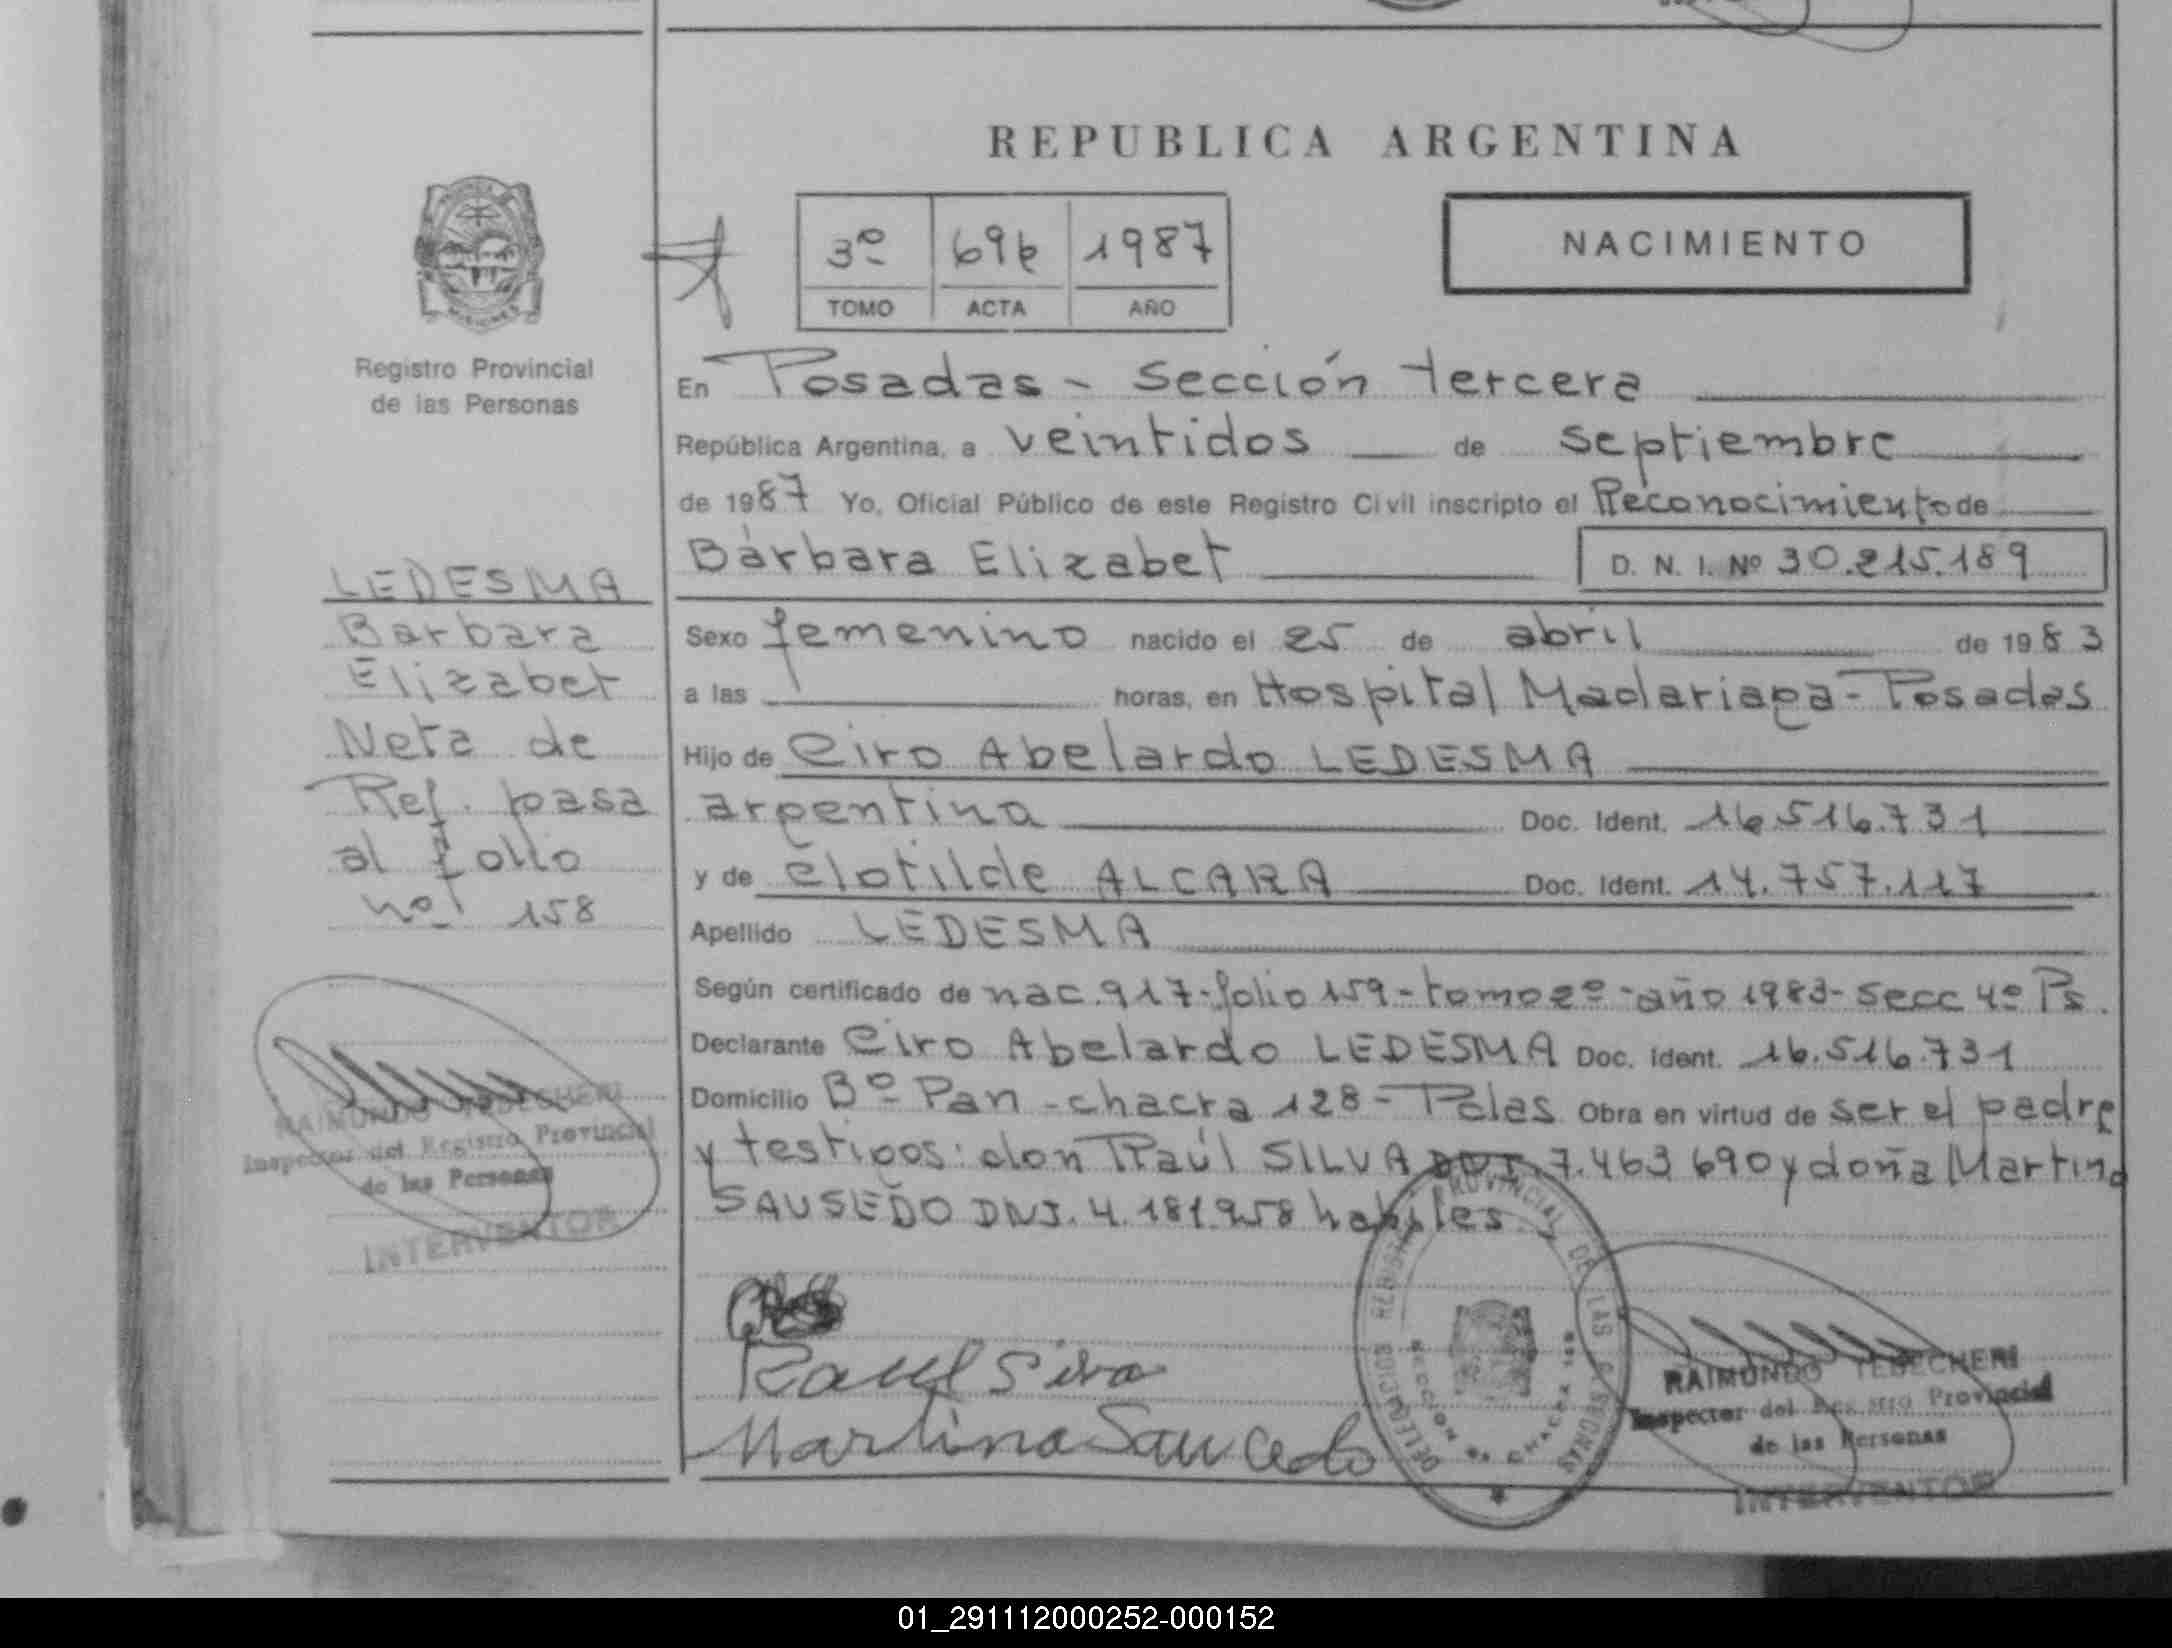 REPUBLICA ARGENTINA
3º 1987
TOMO ACTA AÑO
NACIMIENTO
MISIONES
Registro Provincial
de las Personas
En Posadas - Sección tercera
República Argentina, a veintidos de septiembre
de 1987 Yo, Oficial Público de este Registro Civil inscripto el Reconocimiento de
Bárbara Elizabet D. N. I. Nº 30.215.189
Sexo femenino nacido el 25 de abril de 1983
a las horas, en Hospital Madariaga - Posadas
Hijo de Ciro Abelardo LEDESMA
argentina Doc. Ident. 16.516.731
y de Clotilde ALCARA Doc. Ident. 14.757.117
Apellido LEDESMA
Según certificado de nac. 917-folio 159-tomo 2º-año 1983-Secc 4º Ps.
Declarante Ciro Abelardo LEDESMA Doc. Ident. 16.516.731
Domicilio Bº Pan - chacra 128 - Pdas Obra en virtud de ser el padre
y testigos: don Raúl SILVA 7.463 690 y doña Martina
SAUSEDO DNI. 4.181.958 habiles
LEDESMA
Barbara
Elizabet
Nota de
Ref. pasa
al folio
nº 158
RAIMUNDO TEDECHERI
Inspector del Registro Provincial
de las Personas
INTERVENTOR
Raul Silva
Martina Saucedo
PROVINCIAL DE LAS PERSONAS
RAIMUNDO TEDECHERI
Inspector del Registro Provincial
de las Personas
INTERVENTOR
01_291112000252-000152